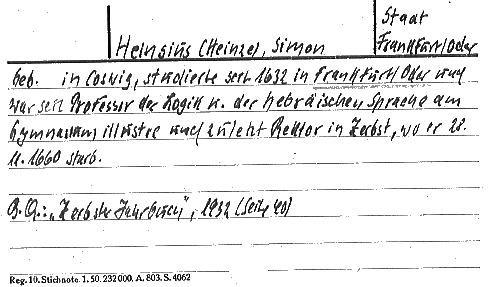 Staat
Heinsius (Heinze), Simon
Frankfurt/Oder
geb. in Coswig, studierte seit 1632 in Frankfurt/Oder und
war seit Professor der Logik u. der hebräischen Sprache am
Gymnasium illustre und zuletzt Rektor in Zerbst, wo er 28.
11. 1660 starb.
B.Q.: „Zerbster Jahrbuch", 1932 (Seite 40)
Reg. 10. Stichnote. 1. 50. 232 000. A. 803. S. 4062